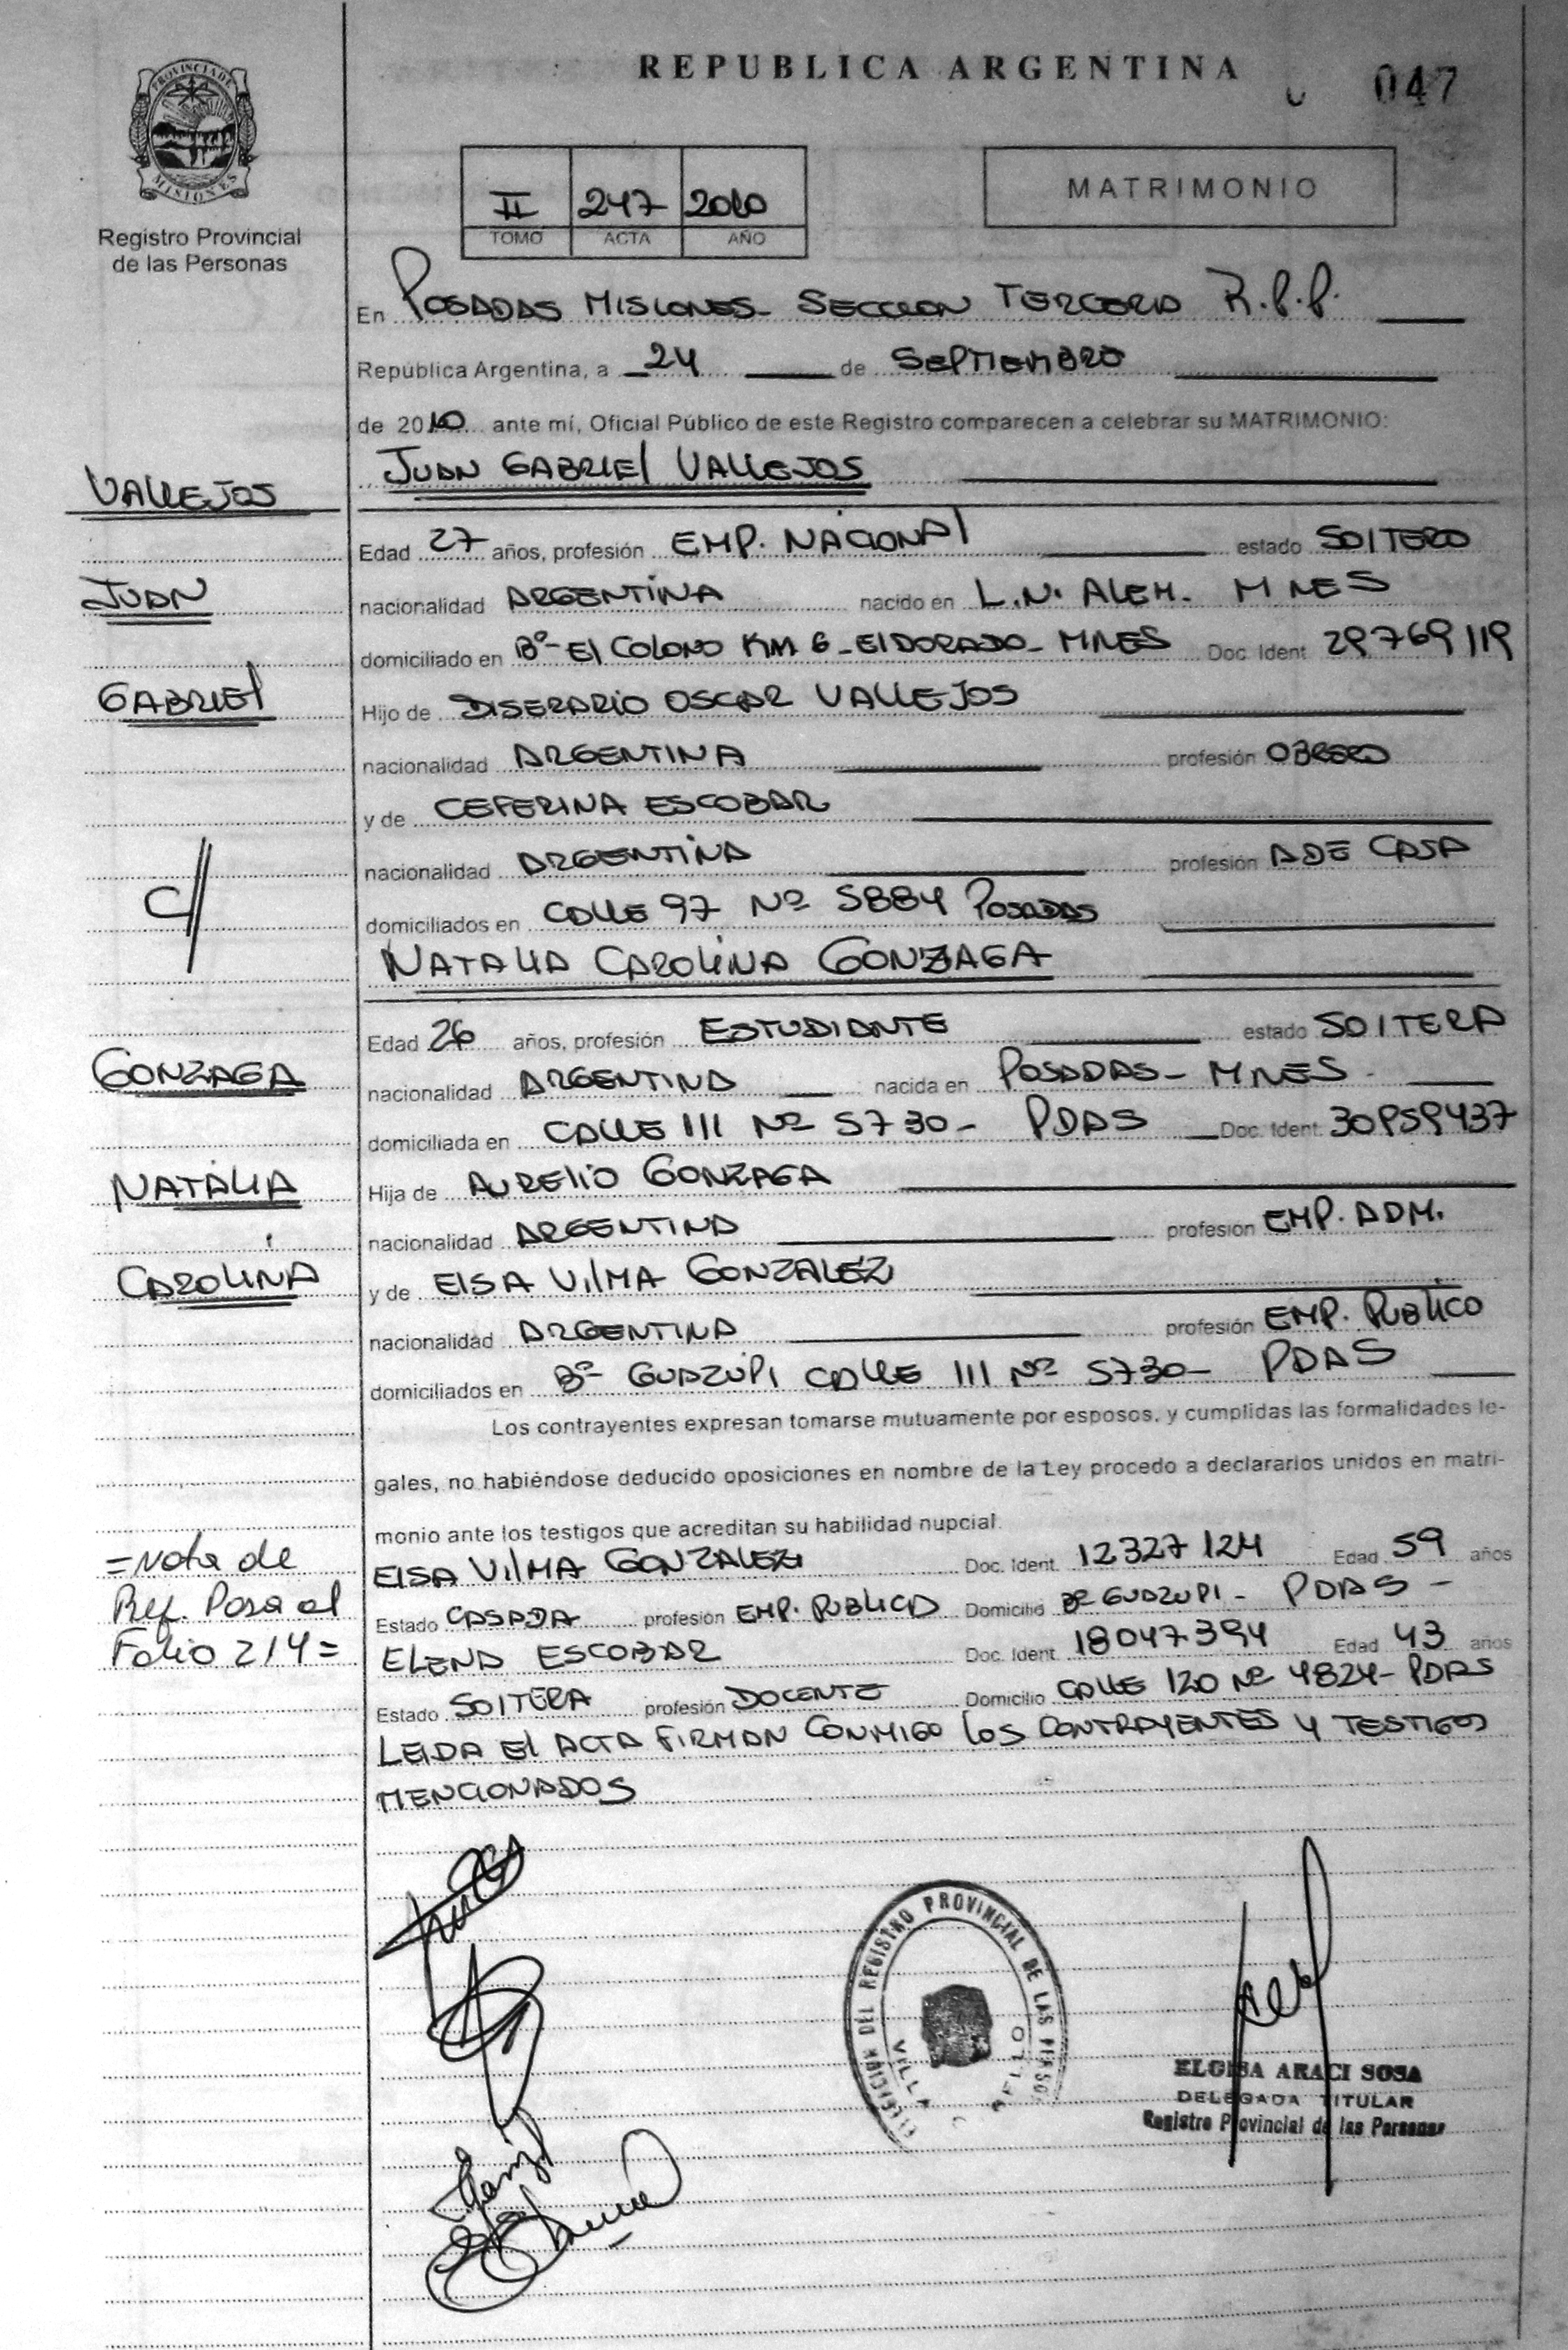 REPUBLICA ARGENTINA
047
PROVINCIA DE MISIONES
Registro Provincial
de las Personas
II 247 2010
TOMO ACTA AÑO
MATRIMONIO
En POSADAS MISIONES- SECCION TERCERA R.P.P.
República Argentina, a 24 de SEPTIEMBRE
de 2010 ante mí, Oficial Público de este Registro comparecen a celebrar su MATRIMONIO:
VALLEJOS
JUAN GABRIEL VALLEJOS
Edad 27 años, profesión EMP. NACIONAL estado SOLTERO
JUAN
nacionalidad ARGENTINA nacido en L.N. ALEM. MNES
domiciliado en Bº- El COLONO KM 6 - ElDORADO - MNES Doc. Ident. 29769119
GABRIEL
Hijo de DISERARIO OSCAR VALLEJOS
nacionalidad ARGENTINA profesión OBRERO
y de CEFERINA ESCOBAR
C//
nacionalidad ARGENTINA profesión ADE CASA
domiciliados en CALLE 97 Nº 5884 POSADAS
NATALIA CAROLINA GONZAGA
Edad 26 años, profesión ESTUDIANTE estado SOLTERA
GONZAGA
nacionalidad ARGENTINA nacida en POSADAS- MNES
domiciliada en CALLE 111 Nº 5730- PDAS Doc. Ident. 30959437
NATALIA
Hija de AURELIO GONZAGA
nacionalidad ARGENTINA profesión EMP. ADM.
CAROLINA
y de ELSA VILMA GONZALEZ
nacionalidad ARGENTINA profesión EMP. PUBLICO
domiciliados en Bº- GUAZUPI CALLE 111 Nº 5730- PDAS
Los contrayentes expresan tomarse mutuamente por esposos, y cumplidas las formalidades le-
gales, no habiéndose deducido oposiciones en nombre de la Ley procedo a declararlos unidos en matri-
monio ante los testigos que acreditan su habilidad nupcial.
=Nota de
Ref. Pasa al
Folio 214=
ELSA VILMA GONZALEZ Doc. Ident. 12327124 Edad 59 años
Estado CASADA profesión EMP. PUBLICA Domicilio Bº GUAZUPI - PDAS -
ELENA ESCOBAR Doc. Ident. 18047394 Edad 43 años
Estado SOLTERA profesión DOCENTE Domicilio CALLE 120 Nº 4824- PDAS
LEIDA El ACTA FIRMAN CONMIGO LOS CONTRAYENTES Y TESTIGOS
MENCIONADOS
DEL REGISTRO PROVINCIAL DE LAS PERSO
VILLA
ELOISA ARACI SOSA
DELEGADA TITULAR
Registro Provincial de las Personas